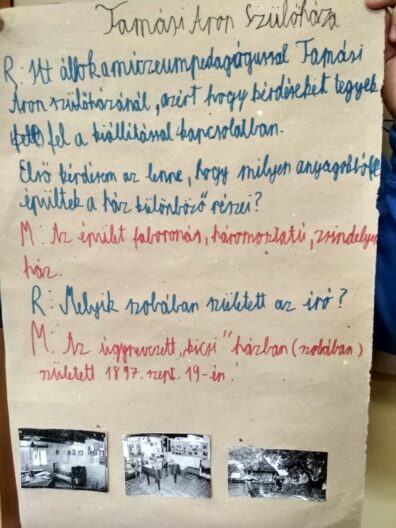 Tamási Áron Szülőháza
R: Itt állok a múzeumpedagógussal Tamási
Áron szülőházánál, azért hogy kérdéseket tegyek
fel a kiállítással kapcsolatban.
Első kérdésem az lenne, hogy milyen anyagokból
épültek a ház különböző részei?
M: Az épület faboronás, háromosztatú, zsindelyes
ház.
R: Melyik szobában született az író?
M: Az úgynevezett „kicsi" házban (szobában)
született 1897. szept. 19-én.